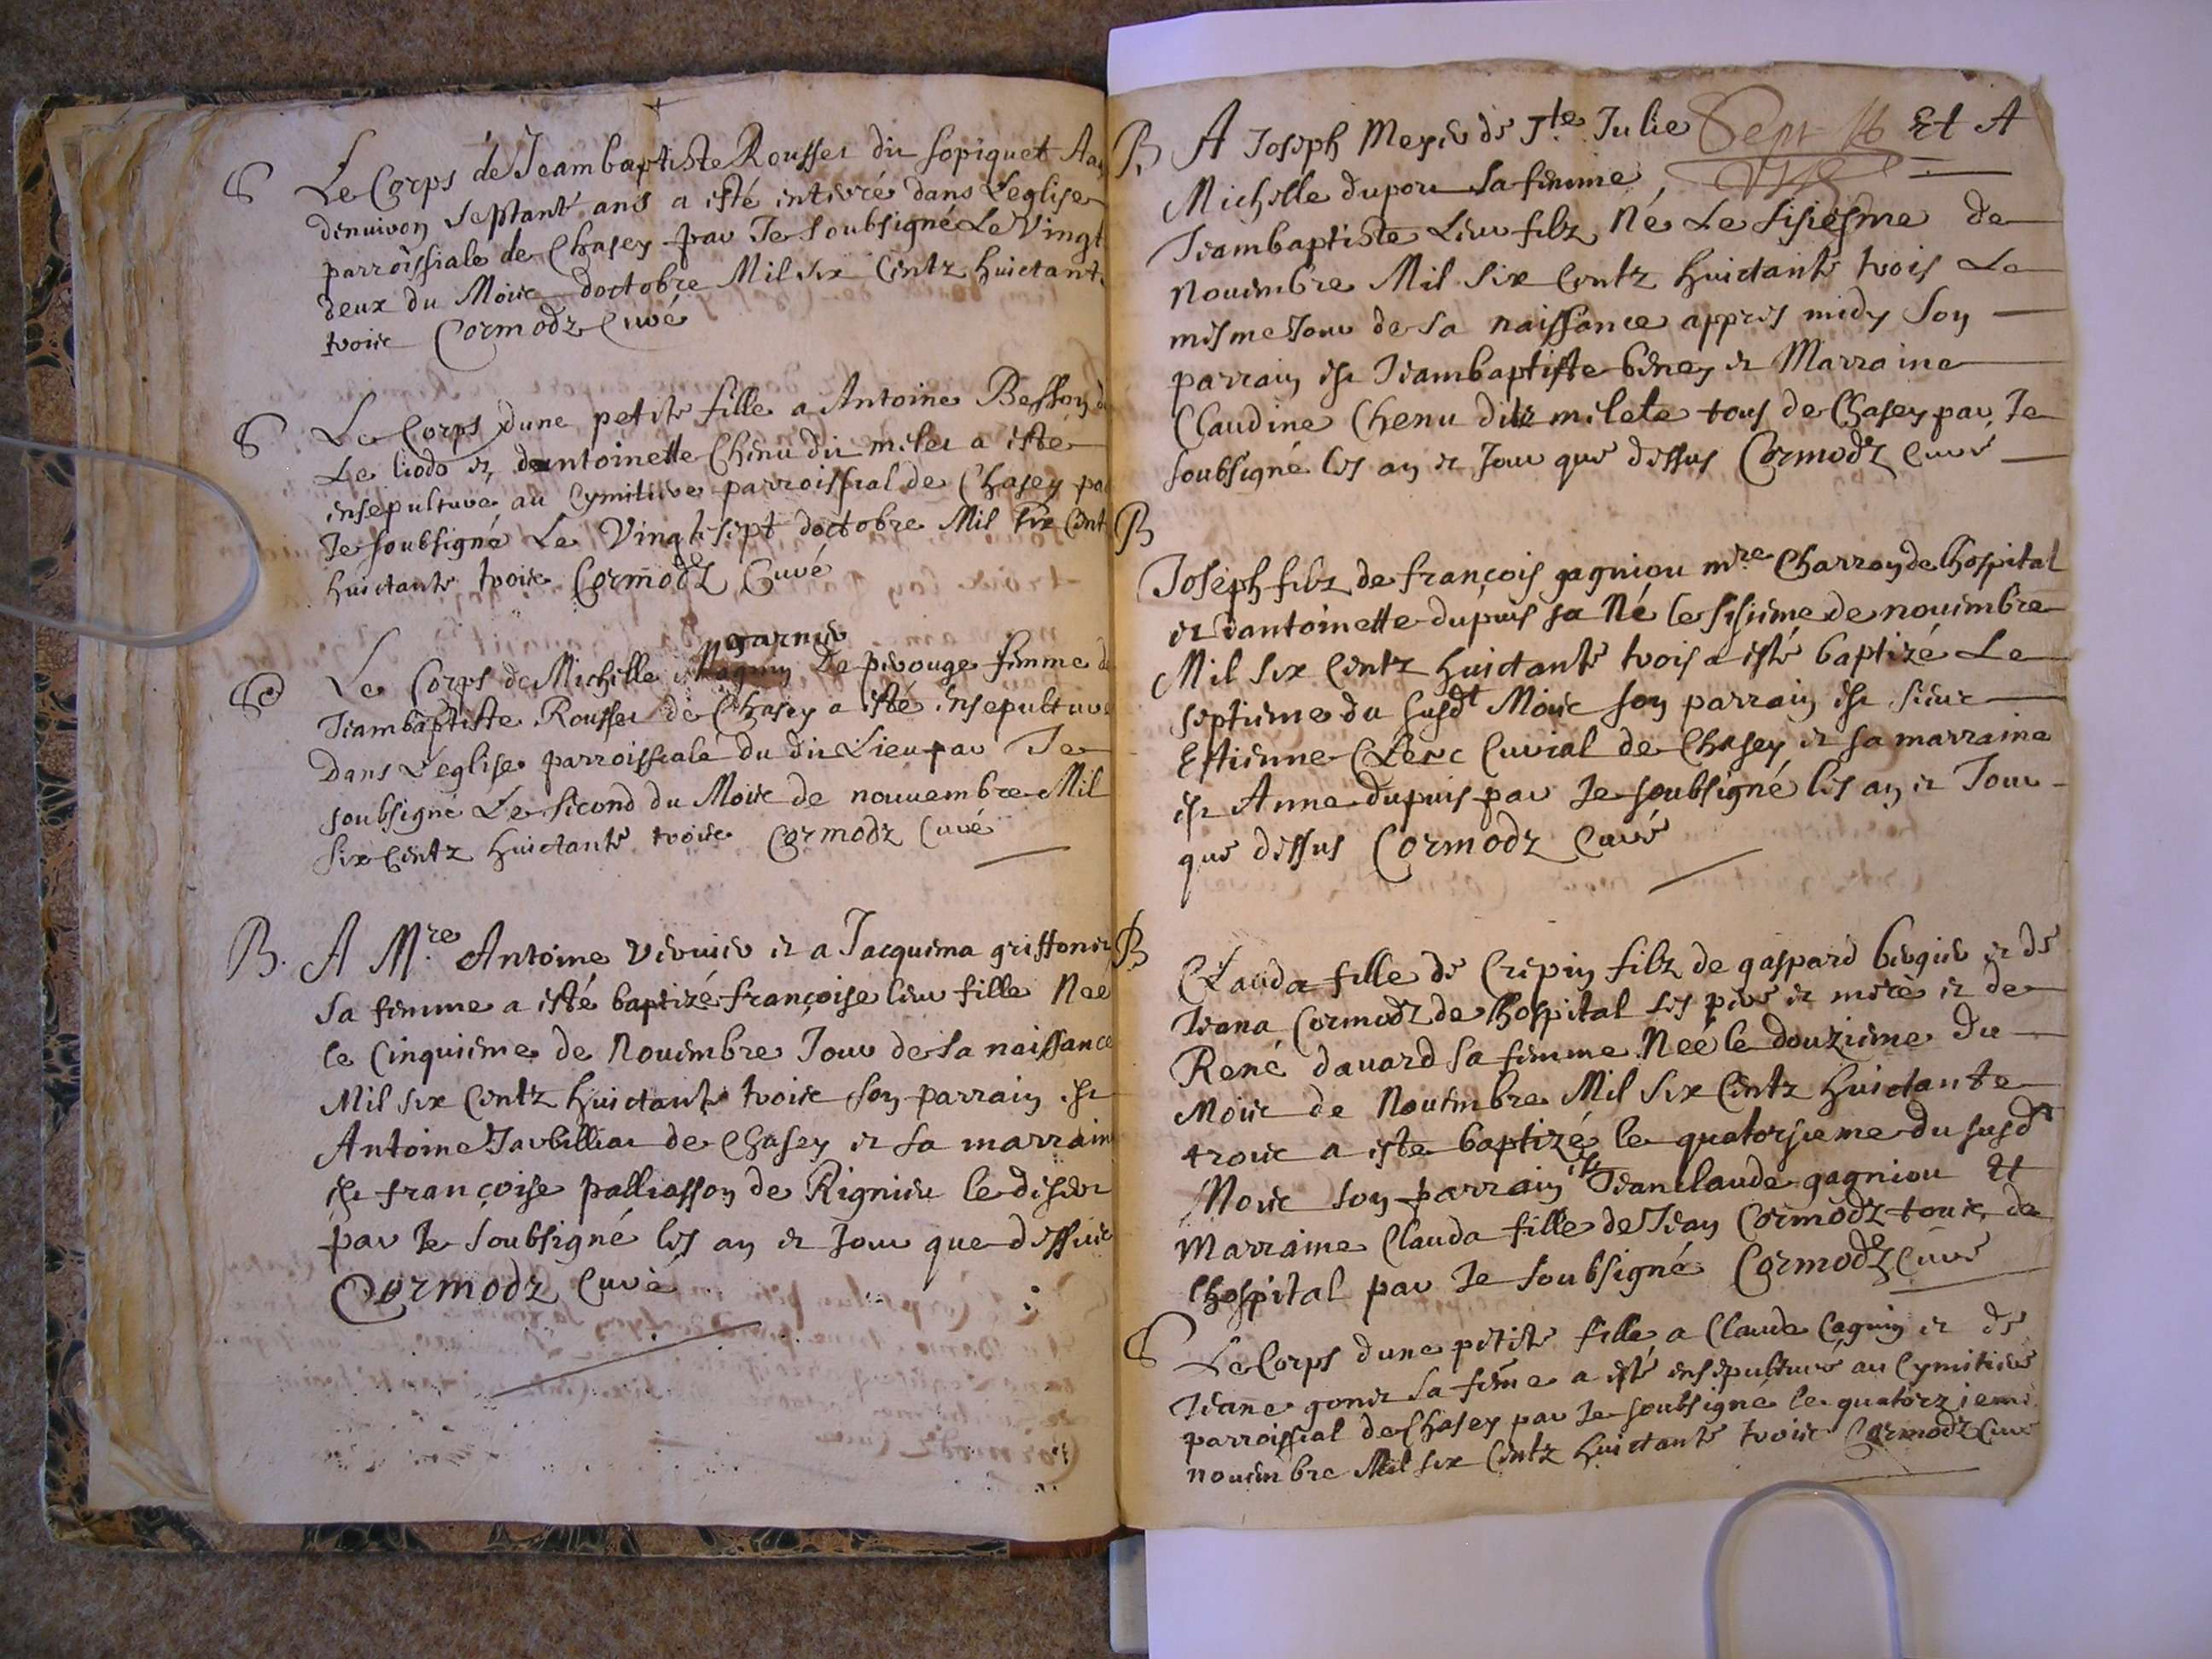 S Le Corps de Jeambaptiste Rousset dit sopiquet Aag
denuiron septante ans a esté enterré dans Leglise
parroissiale de Chasey par Je soubsigné Le Vingt
deux du Moiis doctobre Mil six Centz huictante
troiis Cormodz Curé
S Le Corps dune petite fille a Antoine Besson d
Le liodo et dantoinette Chenu dit milet a esté
ensepulturé au Cymitiere parroissial de Chasey par
Je soubsigné Le Vingt sept doctobre Mil six Cent
huictante troiis Cormodz Curé
garnier
S Le Corps de Michelle de perouge femme d
Jeambaptiste Rousset de Chasey a esté ensepulture
Dans Leglise parroissiale du dit Lieu par Je
soubsigné Le second du Moiis de nouuembre Mil
six Centz huictante troiis Cormodz Curé
B. A M.re Antoine veruier et a Jacquema griffonet
sa femme a esté baptizé françoise leur fille Neé
le Cinquieme de Nouembre Jour de sa naissance
Mil six Centz huictante troiis son parrain est
Antoine Jarbilliat de Chasey et sa marraine
est françoise palliasson de Rignieu le desert
par Je soubsigné les an et Jour que dessuis
Cormodz Curé
B. A Joseph Meyer de S.te Julie Sept 16 Et A
Michelle duport sa femme
Jeambaptiste Leur filz Né Le sisiesme de
nouembre Mil six Centz huictante trois Le
mesme Jour de sa naissance appres midy son
parrain est Jeambaptiste beney et Marraine
Claudine Chenu dite milete tous de Chasey par Je
soubsigné les an et Jour que dessus Cormodz Curé
B
Joseph filz de françois gagniou m.re Charron de lhospital
et dantoinette dupuis sa Né le sisieme de nouembre
Mil six Centz huictante trois a esté baptizé Le
septieme du susd.t Moiis son parrain est sieur
Estienne Clerc Curial de Chasey et sa marraine
est Anne dupuis par Je soubsigné les an et Jour
que dessus Cormodz Curé
B Clauda fille de Crepin filz de gaspard bergier et de
Jeana Cormodz de lhospital ses pere et mere et de
René dauard sa femme Neé le douzieme du
Moiis de Nouembre Mil six Centz huictante
troiis a esté baptizé le quatorsieme du susd.t
Moiis son parrain est Jeanclaude gagniou Et
Marraine Clauda fille de Jean Cormodz touis de
lhospital par Je soubsigné Cormodz Curé
S Le Corps dune petite fille a Claude Cagnin et de
Jeane gonet sa feme a esté ensepulturé au Cymitiere
parroissial de Chasey par Je soubsigné le quatorzieme
nouembre Mil six Centz huictante troiis Cormodz Curé